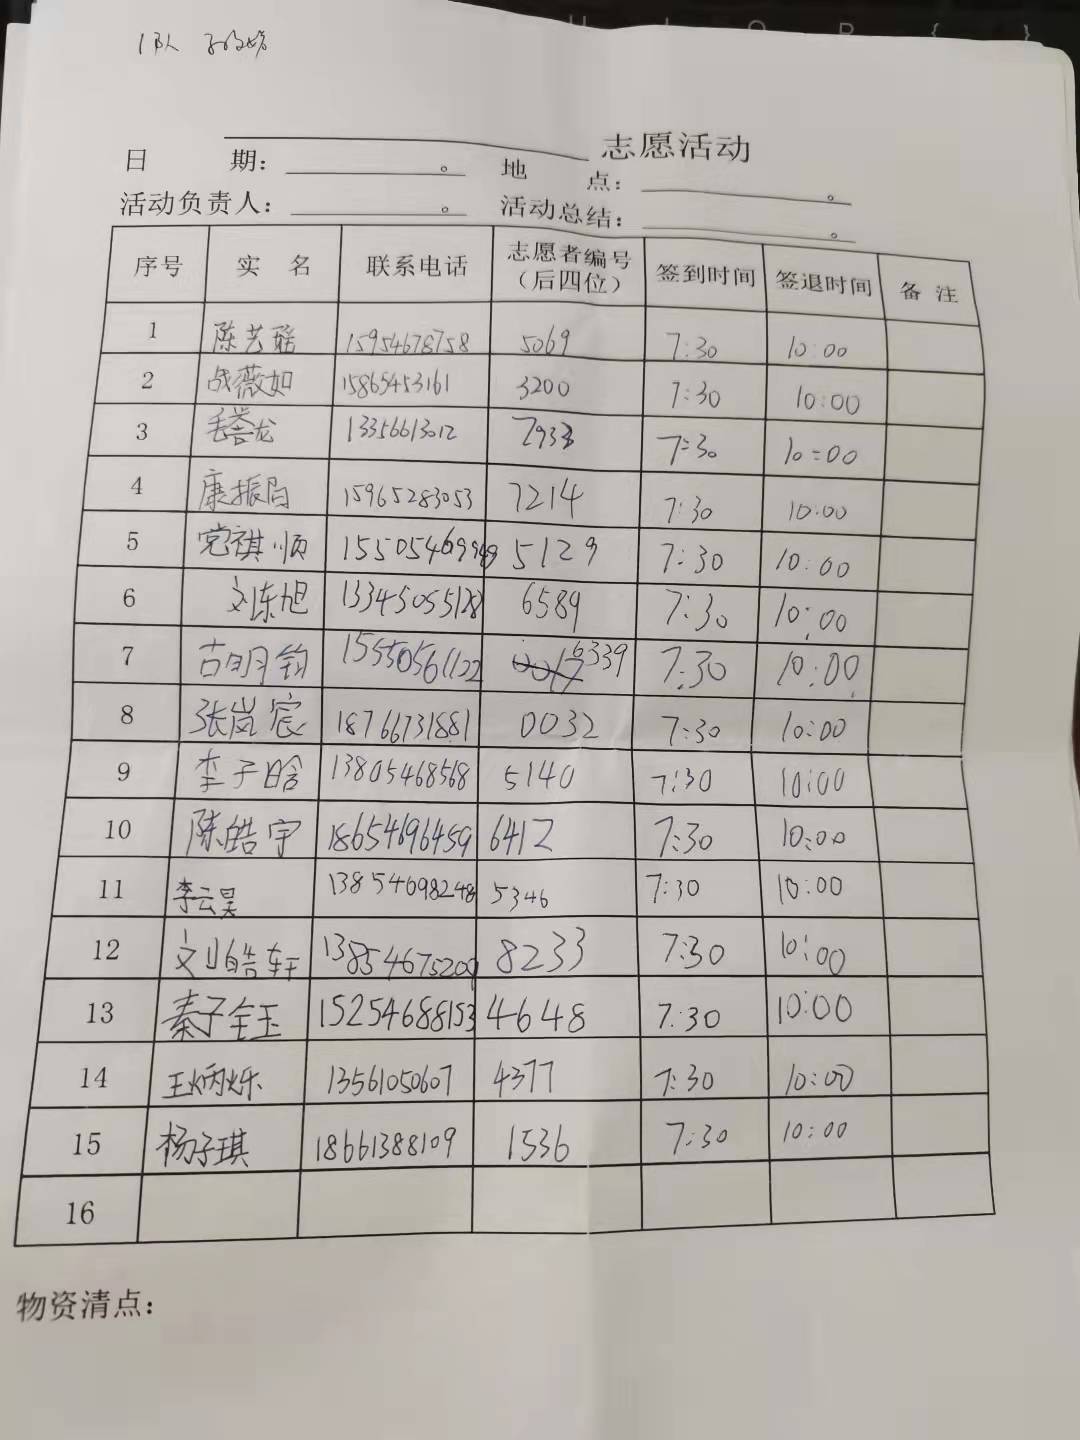 1队
志愿活动
日 期: 。 地 点: 。
活动负责人: 。 活动总结: 。
序号 实 名 联系电话 志愿者编号（后四位） 签到时间 签退时间 备 注
1 陈艺 15954678758 5069 7:30 10:00
2 战薇如 15865453161 3200 7:30 10:00
3 毛誉龙 13356613012 7933 7:30 10:00
4 康振 15965283053 7214 7:30 10:00
5 党祺顺 5129 7:30 10:00
6 刘东旭 13345055128 6589 7:30 10:00
7 古明钧 15550561122 6339 7:30 10:00
8 张岚宸 18766731881 0032 7:30 10:00
9 李子晗 13805468568 5140 7:30 10:00
10 陈皓宇 18654696459 6412 7:30 10:00
11 李云昊 13854698248 5346 7:30 10:00
12 刘皓轩 13854675209 8233 7:30 10:00
13 秦子全玉 15254688153 4648 7:30 10:00
14 王炳烁 13561050607 4377 7:30 10:00
15 杨子琪 18661388109 1536 7:30 10:00
16
物资清点: